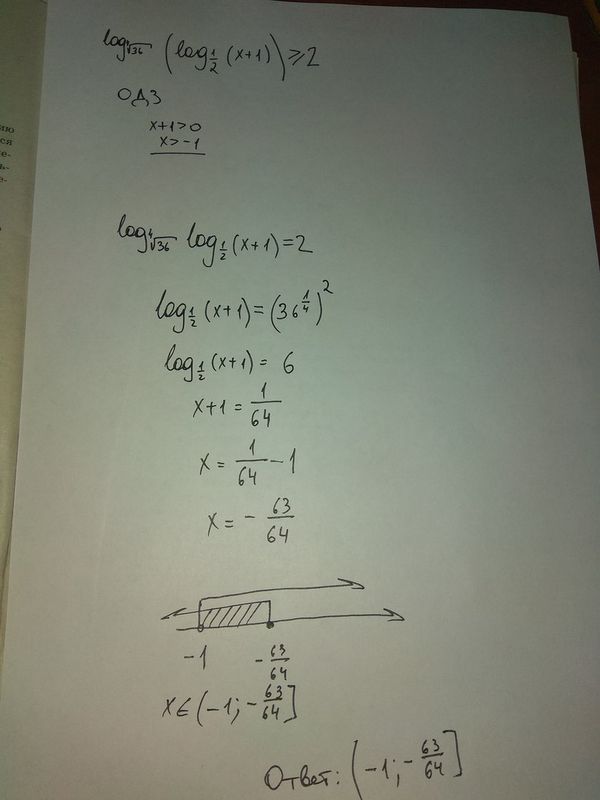 log_{\sqrt[4]{36}} (log_{\frac{1}{2}} (x+1)) ⩾ 2
ОДЗ
x+1>0
x>-1
log_{\sqrt[4]{36}} log_{\frac{1}{2}} (x+1) = 2
log_{\frac{1}{2}} (x+1) = (36^{\frac{1}{4}})^2
log_{\frac{1}{2}} (x+1) = 6
x+1 = \frac{1}{64}
x = \frac{1}{64} - 1
x = - \frac{63}{64}
-1 -\frac{63}{64}
x ∈ (-1; -\frac{63}{64}]
Ответ: (-1; -\frac{63}{64}]